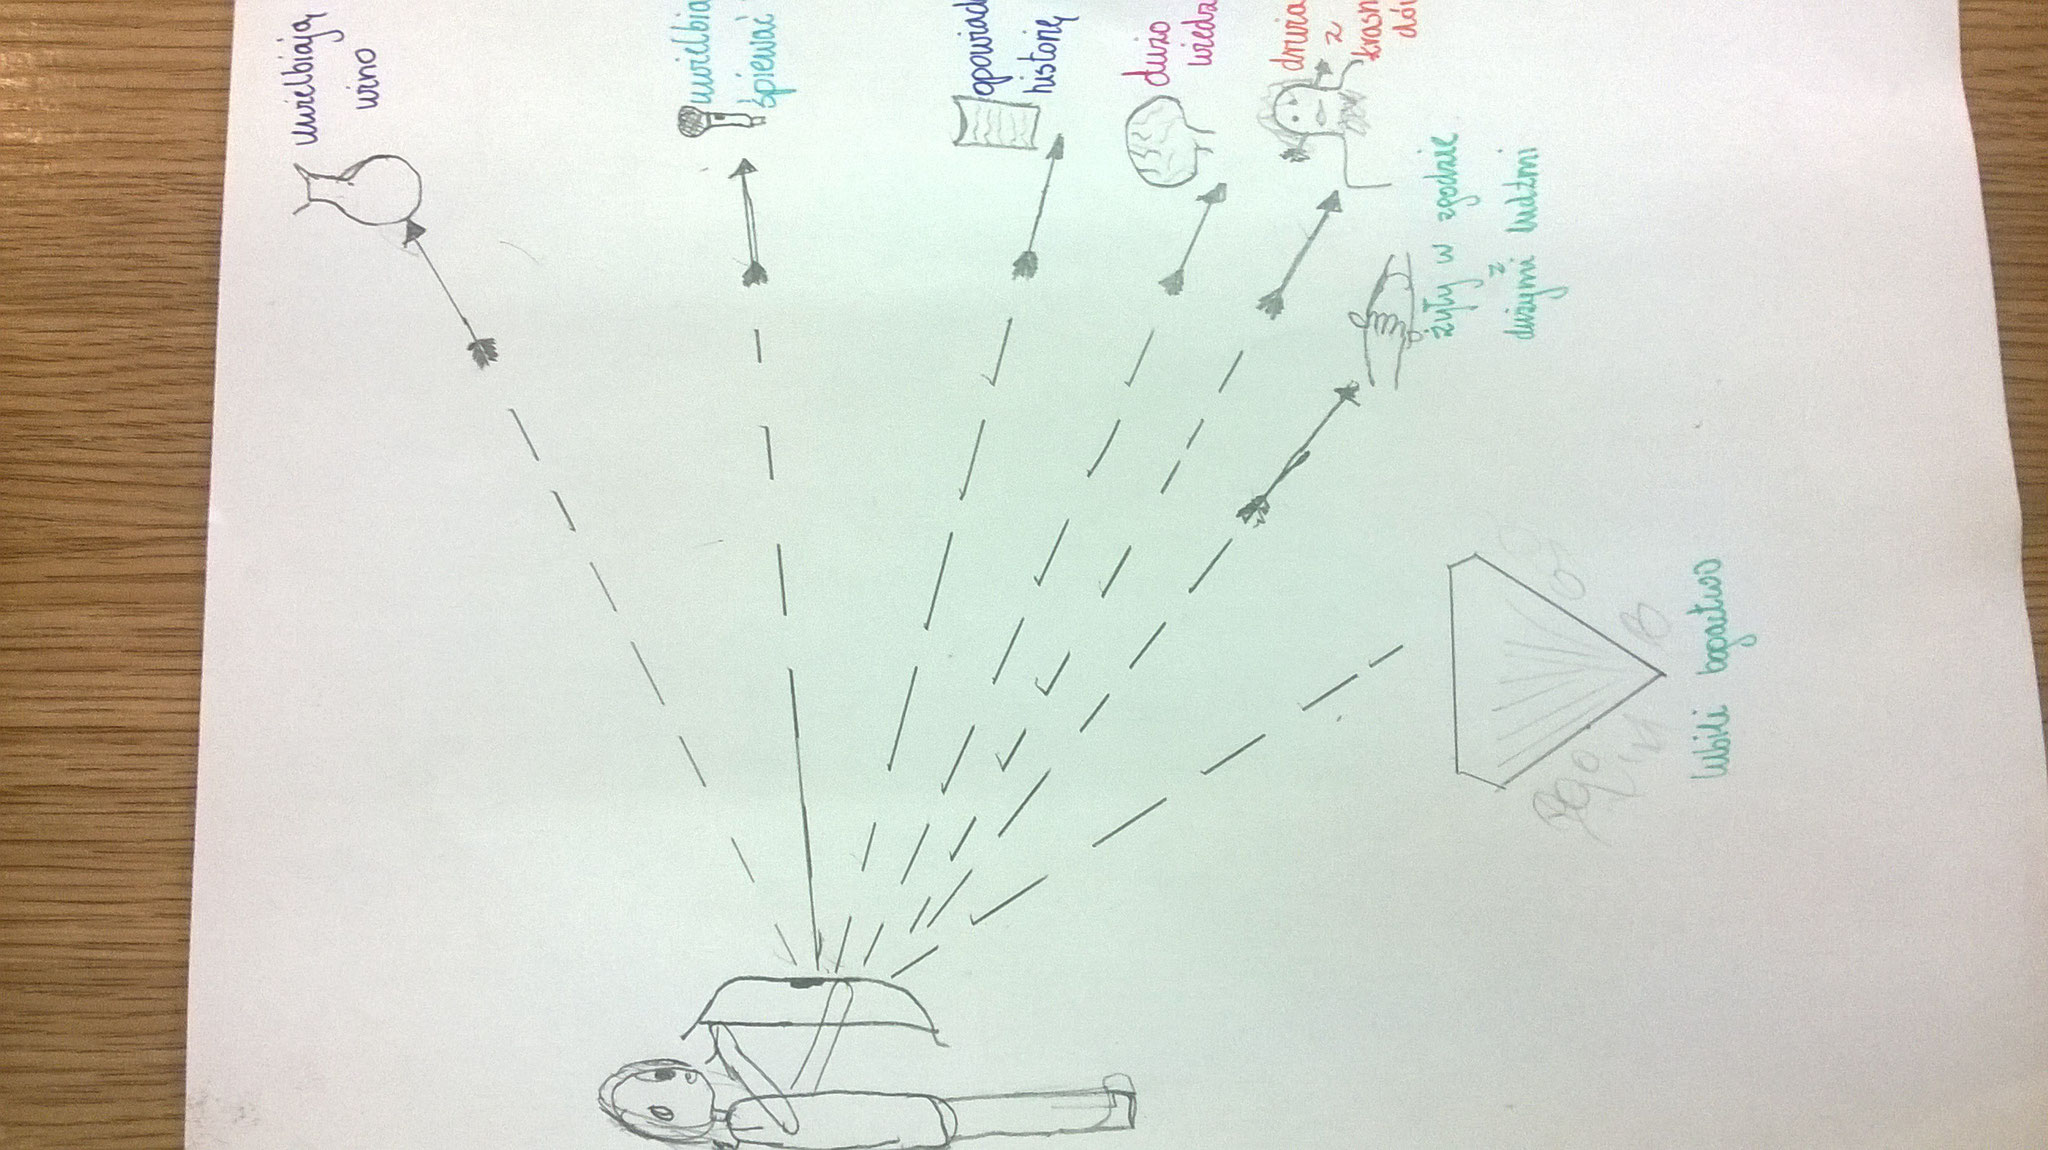 uwielbiają
wino
uwielbia
śpiewać
opowiad
historię
dużo
wiedz
drwią
z
krasn
żyły w zgodzie
z
dużymi ludźmi
lubili bogactwo